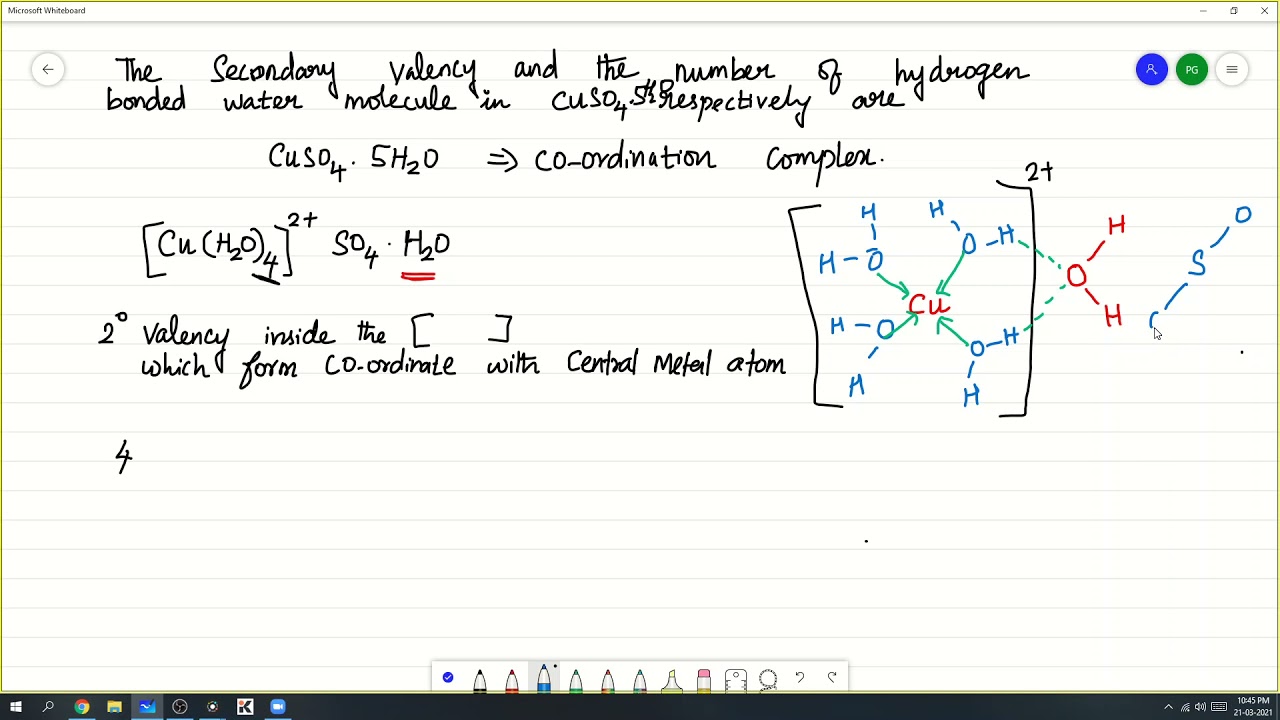 Microsoft Whiteboard
PG
The Secondary valency and the number of hydrogen
bonded water molecule in CuSO4.5H2O respectively are
CuSO4. 5H2O ⇒ CO-ordination complex.
[Cu(H2O)4]2+ SO4 . H2O
2° valency inside the [ ]
which form CO-ordinate with Central Metal atom
4
2+
H H
H O O H H O
Cu O S
H O H
O H H
H H
10:45 PM
21-03-2021